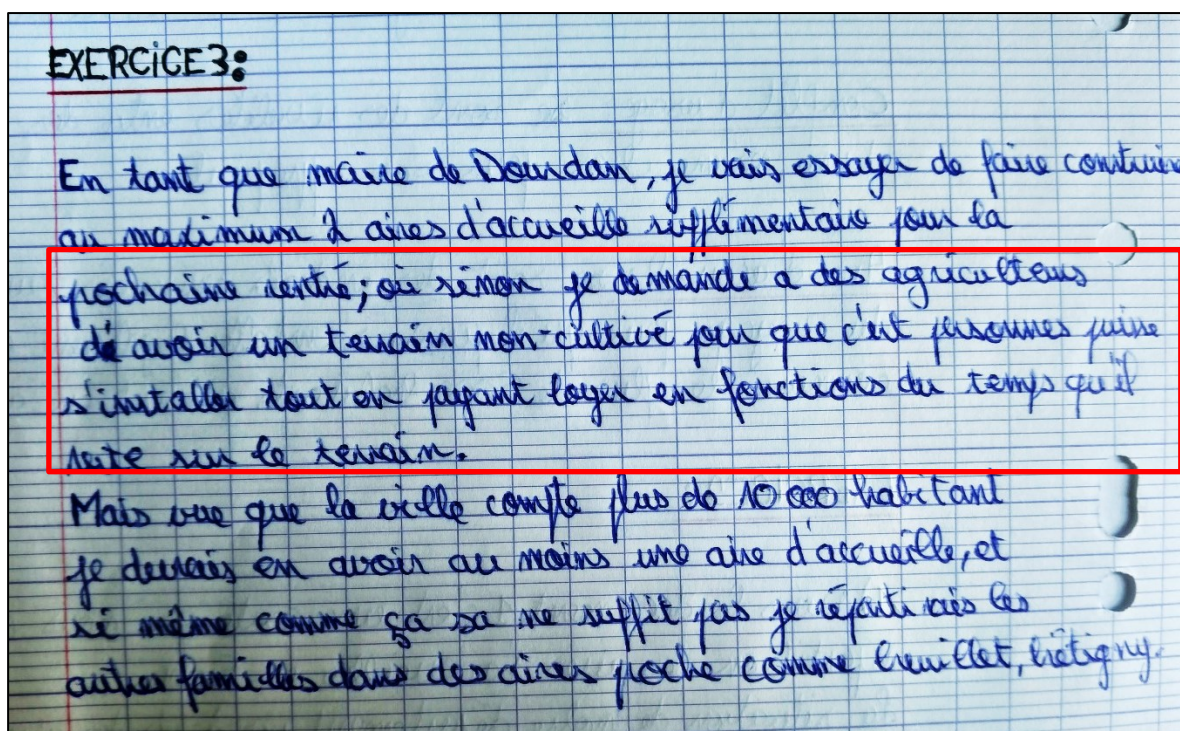 EXERCICE 3:
En tant que maire de Dourdan, je vais essayer de faire construire
au maximum 2 aires d'accueille supplémentaire pour la
prochaine rentré; où sinon je demande a des agriculteurs
d'avoir un terrain non-cultivé pour que c'est personnes puisse
s'installer tout en payant loyer en fonctions du temps qu'il
reste sur le terrain.
Mais vue que la ville compte plus de 10 000 habitant
je devrais en avoir au moins une aire d'accueille, et
si même comme ça sa ne suffit pas je répartirais les
autres familles dans des aires proche comme breuillet, brétigny.